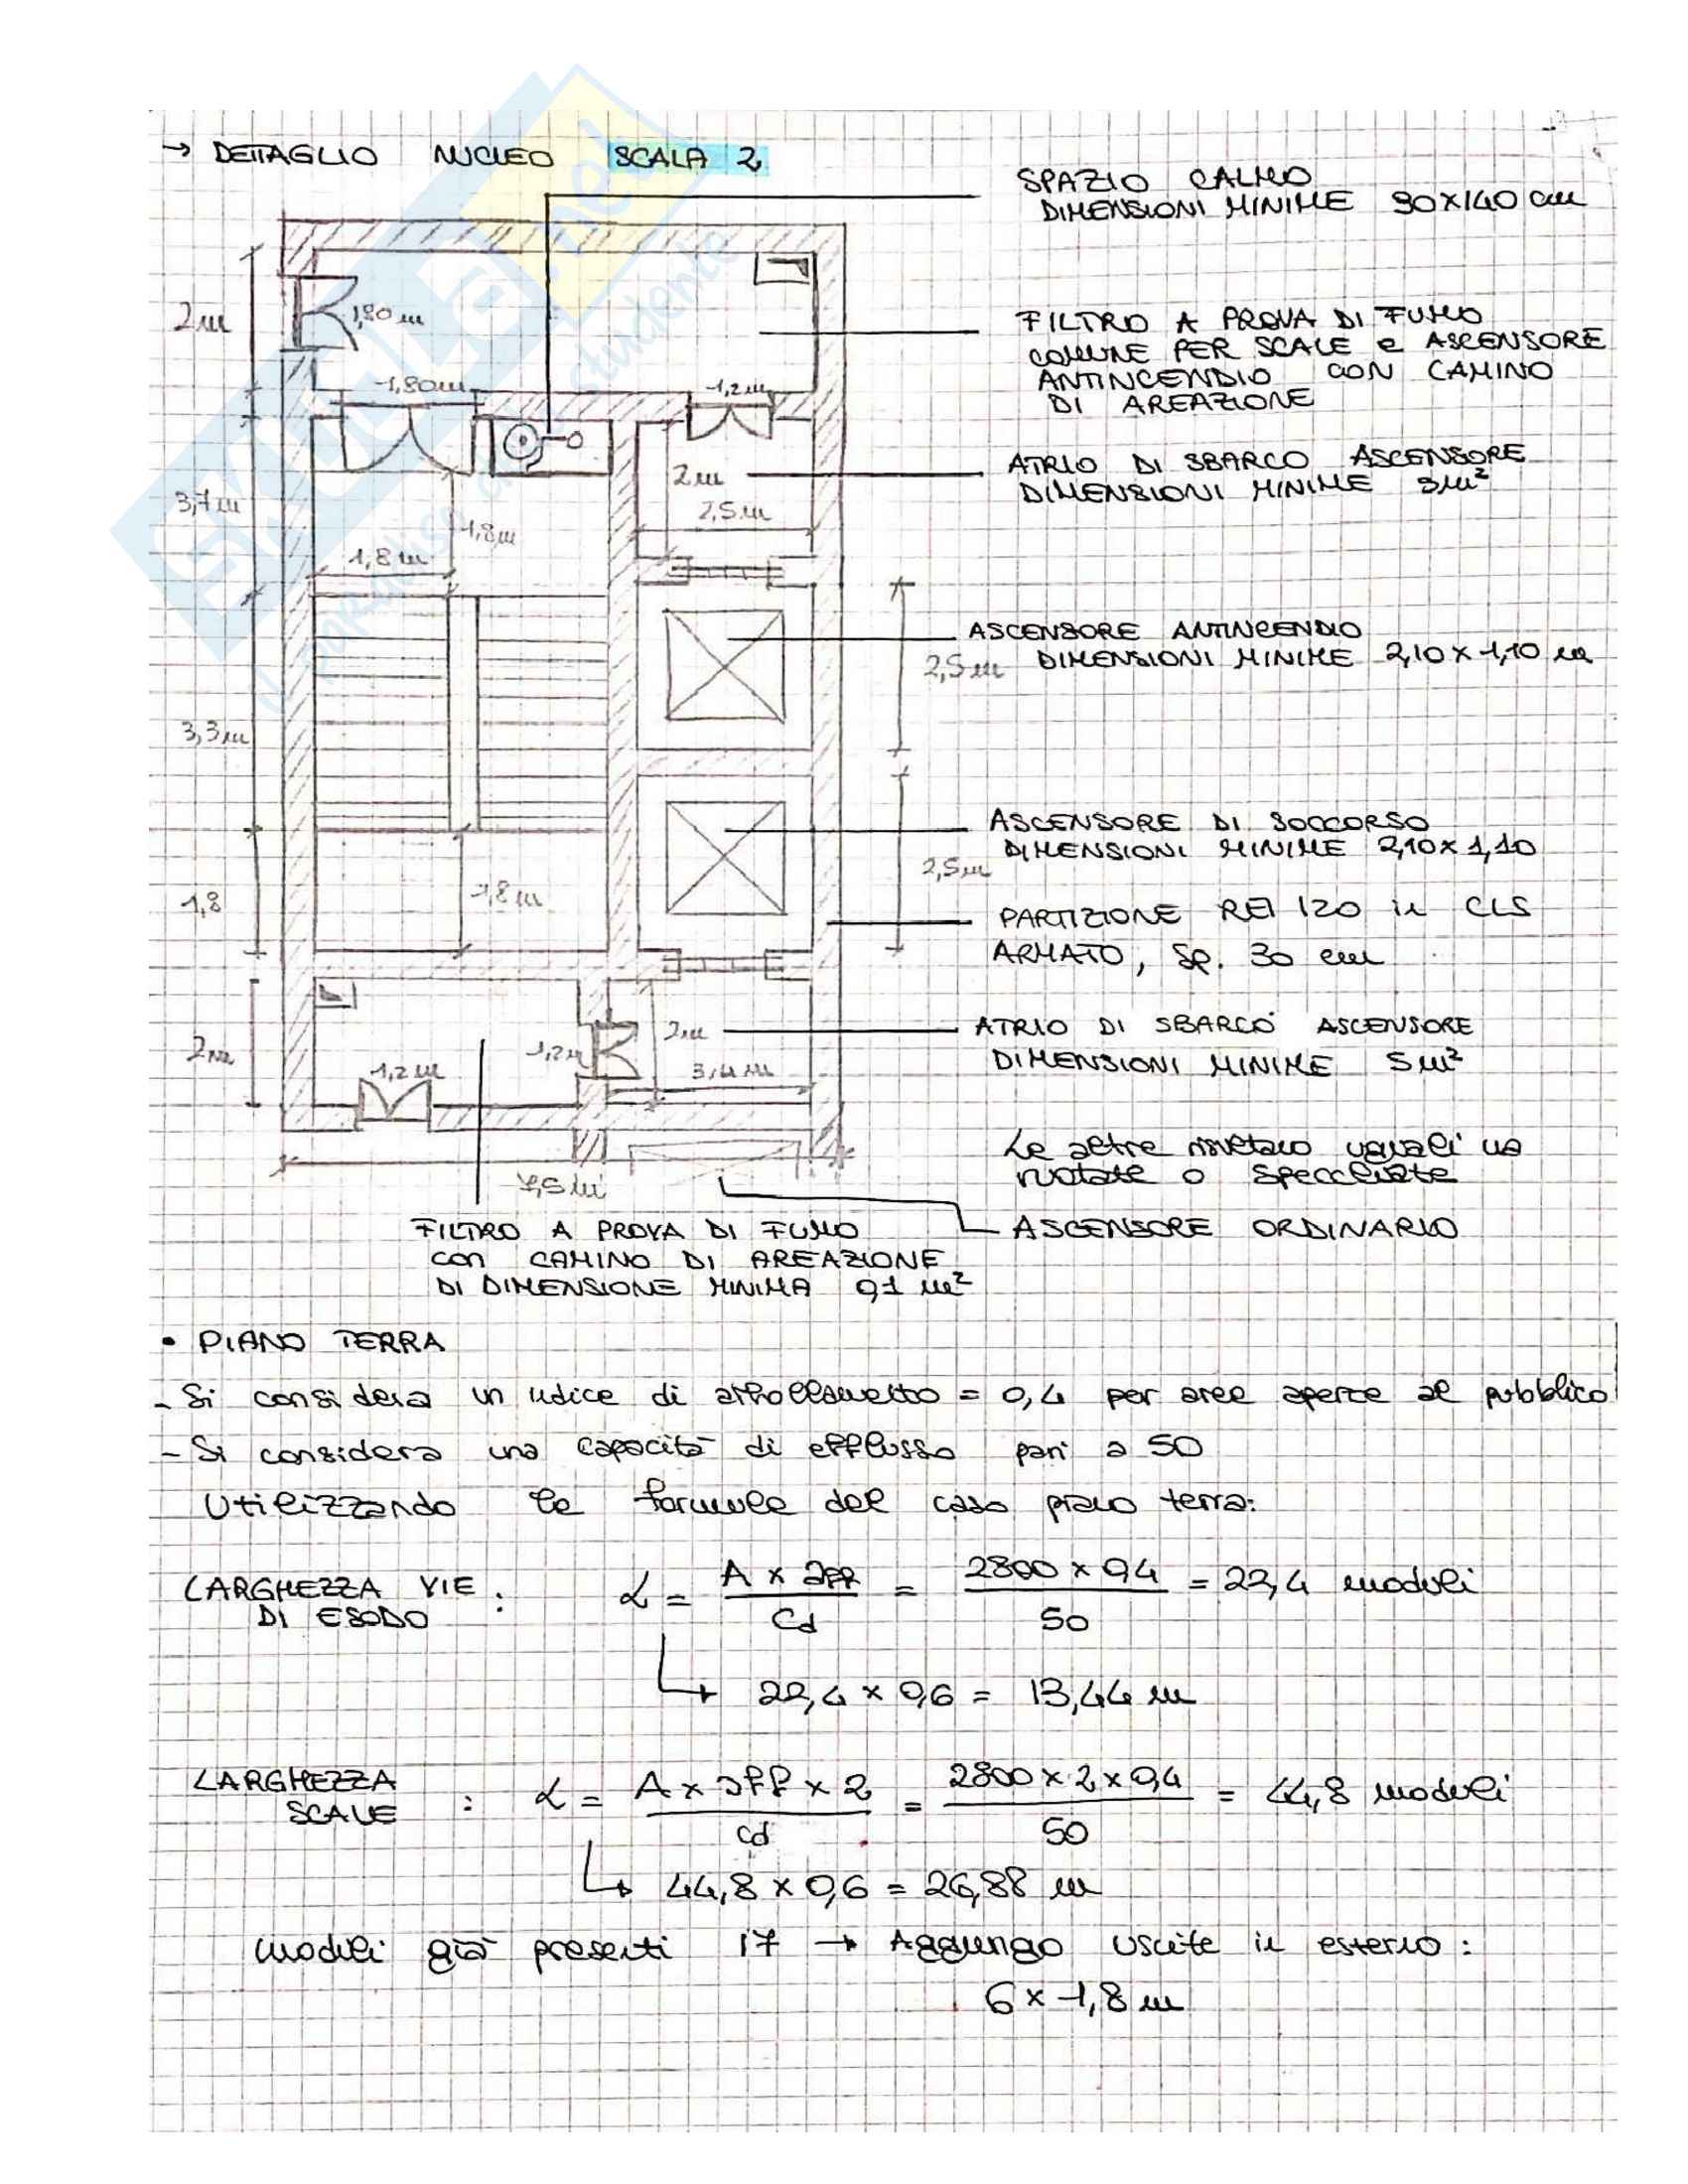 → DETTAGLIO NUCLEO SCALA 2
SPAZIO CALMO
DIMENSIONI MINIME 90x140 cm
2m
1,80 m
FILTRO A PROVA DI FUMO
COMUNE PER SCALE e ASCENSORE
ANTINCENDIO CON CAMINO
DI AREAZIONE
1,80m
1,2m
ATRIO DI SBARCO ASCENSORE
DIMENSIONI MINIME 5m²
2m
2,5m
3,7m
1,8m
1,8m
ASCENSORE ANTINCENDIO
DIMENSIONI MINIME 2,10 x 1,10 m
2,5m
3,3m
ASCENSORE DI SOCCORSO
DIMENSIONI MINIME 2,10x1,10
2,5m
1,8
1,8m
PARTIZIONE REI 120 in CLS
ARMATO, Sp. 30 cm
ATRIO DI SBARCO ASCENSORE
DIMENSIONI MINIME 5m²
2m
1,2m
1,2m
2m
3,4m
Le altre risultano uguali ma
ruotate o specchiate
7,5m
ASCENSORE ORDINARIO
FILTRO A PROVA DI FUMO
con CAMINO DI AREAZIONE
DI DIMENSIONE MINIMA 0,1 m²
• PIANO TERRA
- Si considera un indice di affollamento = 0,4 per aree aperte al pubblico
- Si considera una capacità di efflusso pari a 50
Utilizzando le formule del caso piano terra:
LARGHEZZA VIE DI ESODO : L = A x aff / Cd = 2800 x 0,4 / 50 = 22,4 moduli
↳ 22,4 x 0,6 = 13,44 m
LARGHEZZA SCALE : L = A x aff x 2 / Cd = 2800 x 2 x 0,4 / 50 = 44,8 moduli
↳ 44,8 x 0,6 = 26,88 m
moduli già presenti 17 → Aggiungo uscite in esterno :
6 x 1,8 m